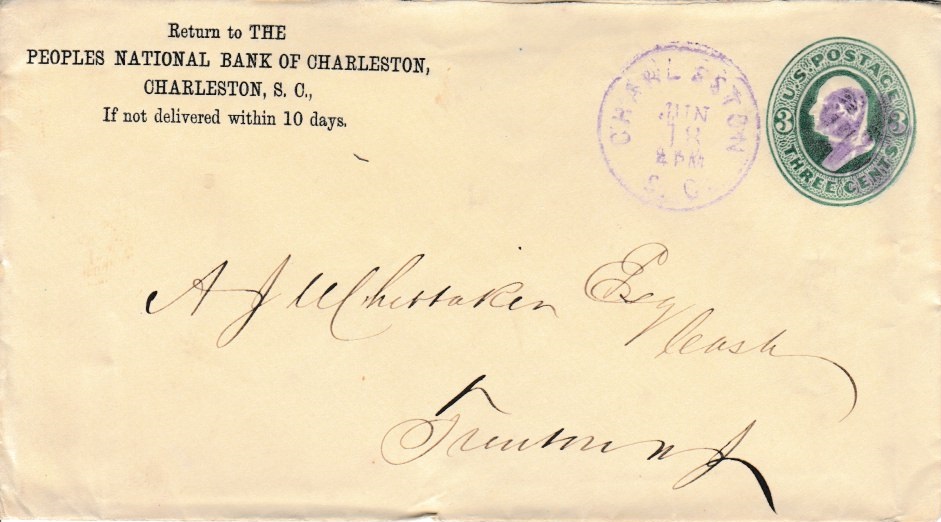 Return to THE
PEOPLES NATIONAL BANK OF CHARLESTON,
CHARLESTON, S. C.,
If not delivered within 10 days.
CHARLESTON
JUN
18
4 PM
S. C.
U.S. POSTAGE
3 3
THREE CENTS
A J Whittaker Esq
Cash
Trenton N J